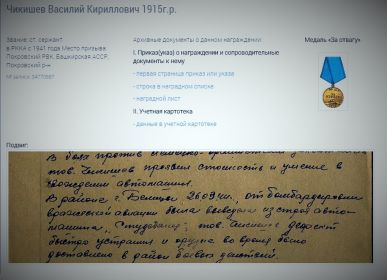 Чикишев Василий Кириллович 1915г.р.
Звание: ст. сержант
в РККА с 1941 года Место призыва:
Покровский РВК, Башкирская АССР,
Покровский р-н
№ записи:
Архивные документы о данном награждении:
I. Приказ(указ) о награждении и сопроводительные
документы к нему
- первая страница приказ или указа
- строка в наградном списке
- наградной лист
II. Учетная картотека
- данные в учетной картотеке
Медаль «За отвагу»
В боях против
тов. Чикишев проявил стойкость и умение в
вождении автомашин.
В районе г. от бомбардировки
вражеской авиации была выведена из строя авто-
машина, тов. Чикишев дефект
быстро устранил и орудие во время было
доставлено в район боевых действий.